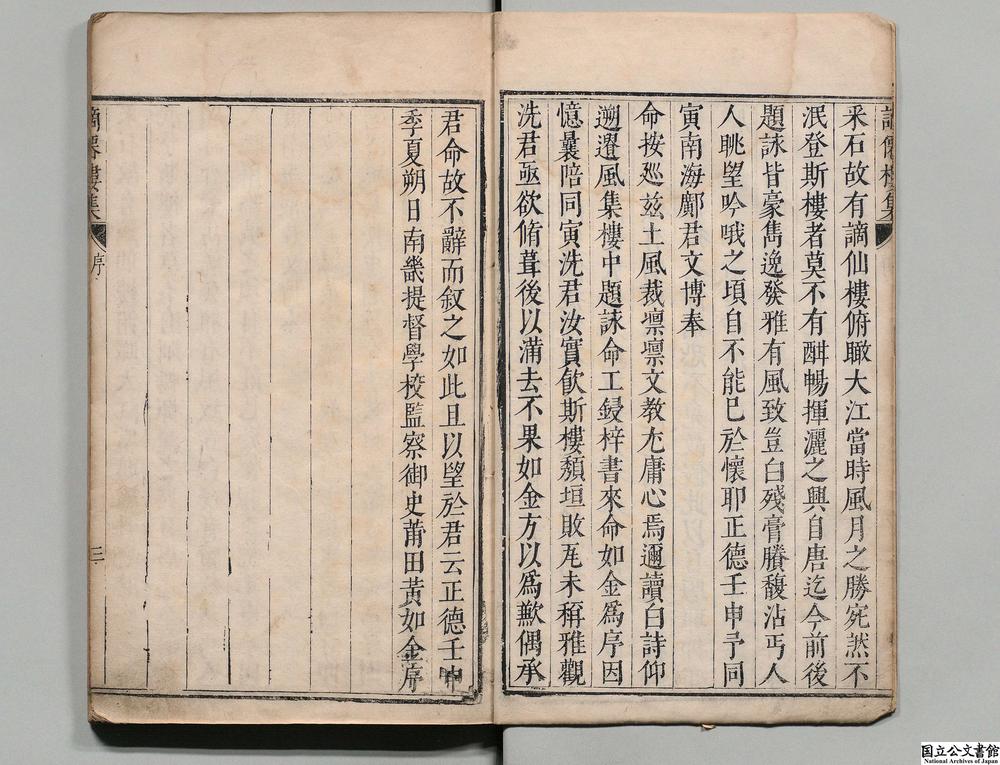 謫僊樓集
采石故有謫仙樓俯瞰大江當時風月之勝宛然不
泯登斯樓者莫不有酣暢揮灑之興自唐迄今前後
題詠皆豪雋逸發雅有風致豈白殘膏賸馥沾丐人
人眺望吟哦之頃自不能已於懷耶正德壬申予同
寅南海鄺君文博奉
命按廵茲土風裁凛凛文教尤庸心焉邇讀白詩仰
遡遺風集樓中題詠命工鋟梓書來命如金爲序因
憶曩陪同寅洗君汝實飲斯樓頽垣敗瓦未稱雅觀
洗君亟欲脩葺後以滿去不果如金方以爲歉偶承
君命故不辭而叙之如此且以望於君云正德壬申
季夏朔日南畿提督學校監察御史莆田黃如金序
謫僊樓集
序
三
国立公文書館
National Archives of Japan